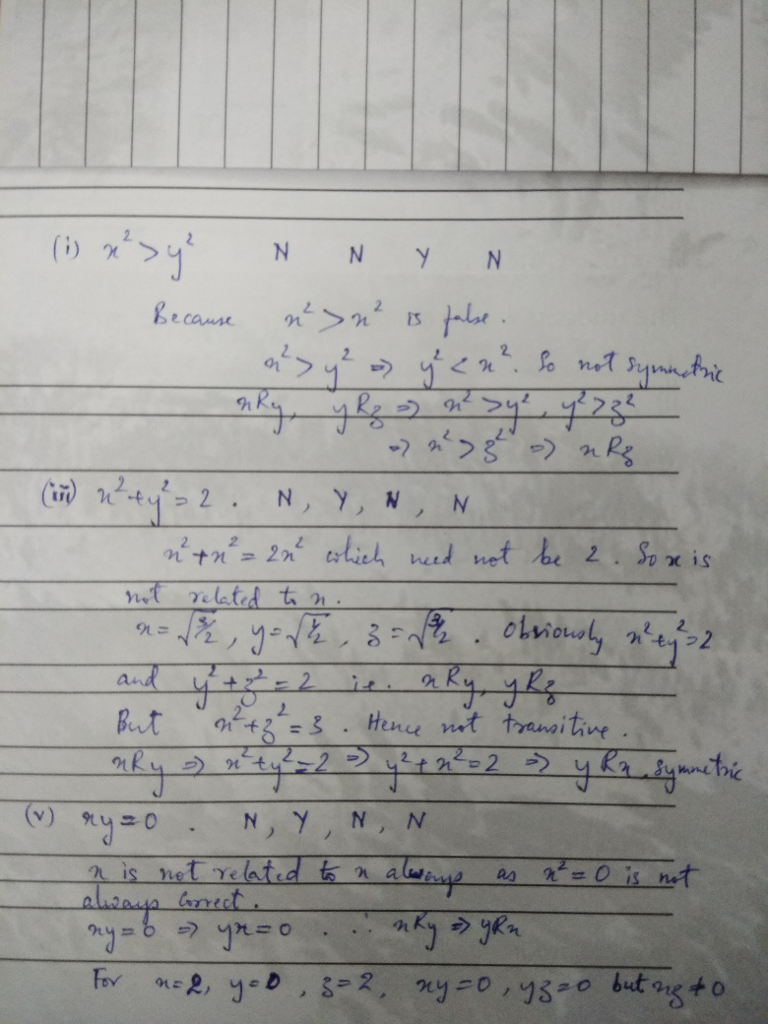 (i) x² > y² N N Y N
Because x² > x² is false.
x² > y² ⇒ y² < x². So not symmetric
xRy, yRz ⇒ x² > y², y² > z²
⇒ x² > z² ⇒ xRz
(iii) x² + y² = 2 . N, Y, N, N
x² + x² = 2x² which need not be 2 . So x is
not related to x.
x = √3/2, y = √1/2, z = √3/2 . Obviously x² + y² = 2
and y² + z² = 2 i.e. xRy, yRz
But x² + z² = 3 . Hence not transitive.
xRy ⇒ x² + y² = 2 ⇒ y² + x² = 2 ⇒ yRx, symmetric
(v) xy = 0 . N, Y, N, N
x is not related to x always as x² = 0 is not
always correct.
xy = 0 ⇒ yx = 0 . ∴ xRy ⇒ yRx
For x = 2, y = 0, z = 2, xy = 0, yz = 0 but xz ≠ 0